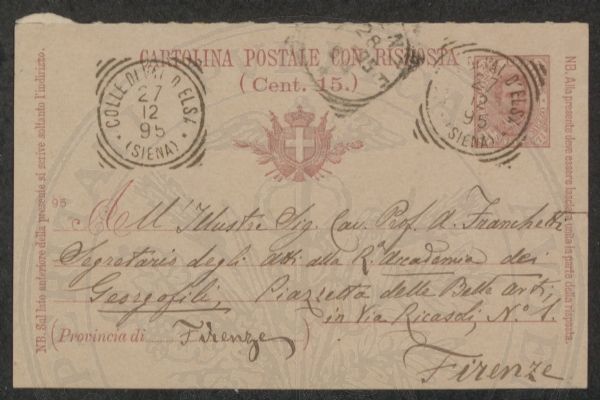 CARTOLINA POSTALE CON RISPOSTA
(Cent. 15.)
COLLE DI VAL D'ELSA
27
12
95
(SIENA)
VAL D'ELSA
95
(SIENA)
28
95
All' Illustre Sig. Cav. Prof. A. Franchetti
Segretario degli Atti alla Rª Accademia dei
Georgofili, Piazzetta delle Belle arti,
in Via Ricasoli, Nº 1.
(Provincia di Firenze)
Firenze
NB. Sul lato anteriore della presente si scrive soltanto l'indirizzo.
NB. Alla presente deve essere lasciata unita la parte della risposta.